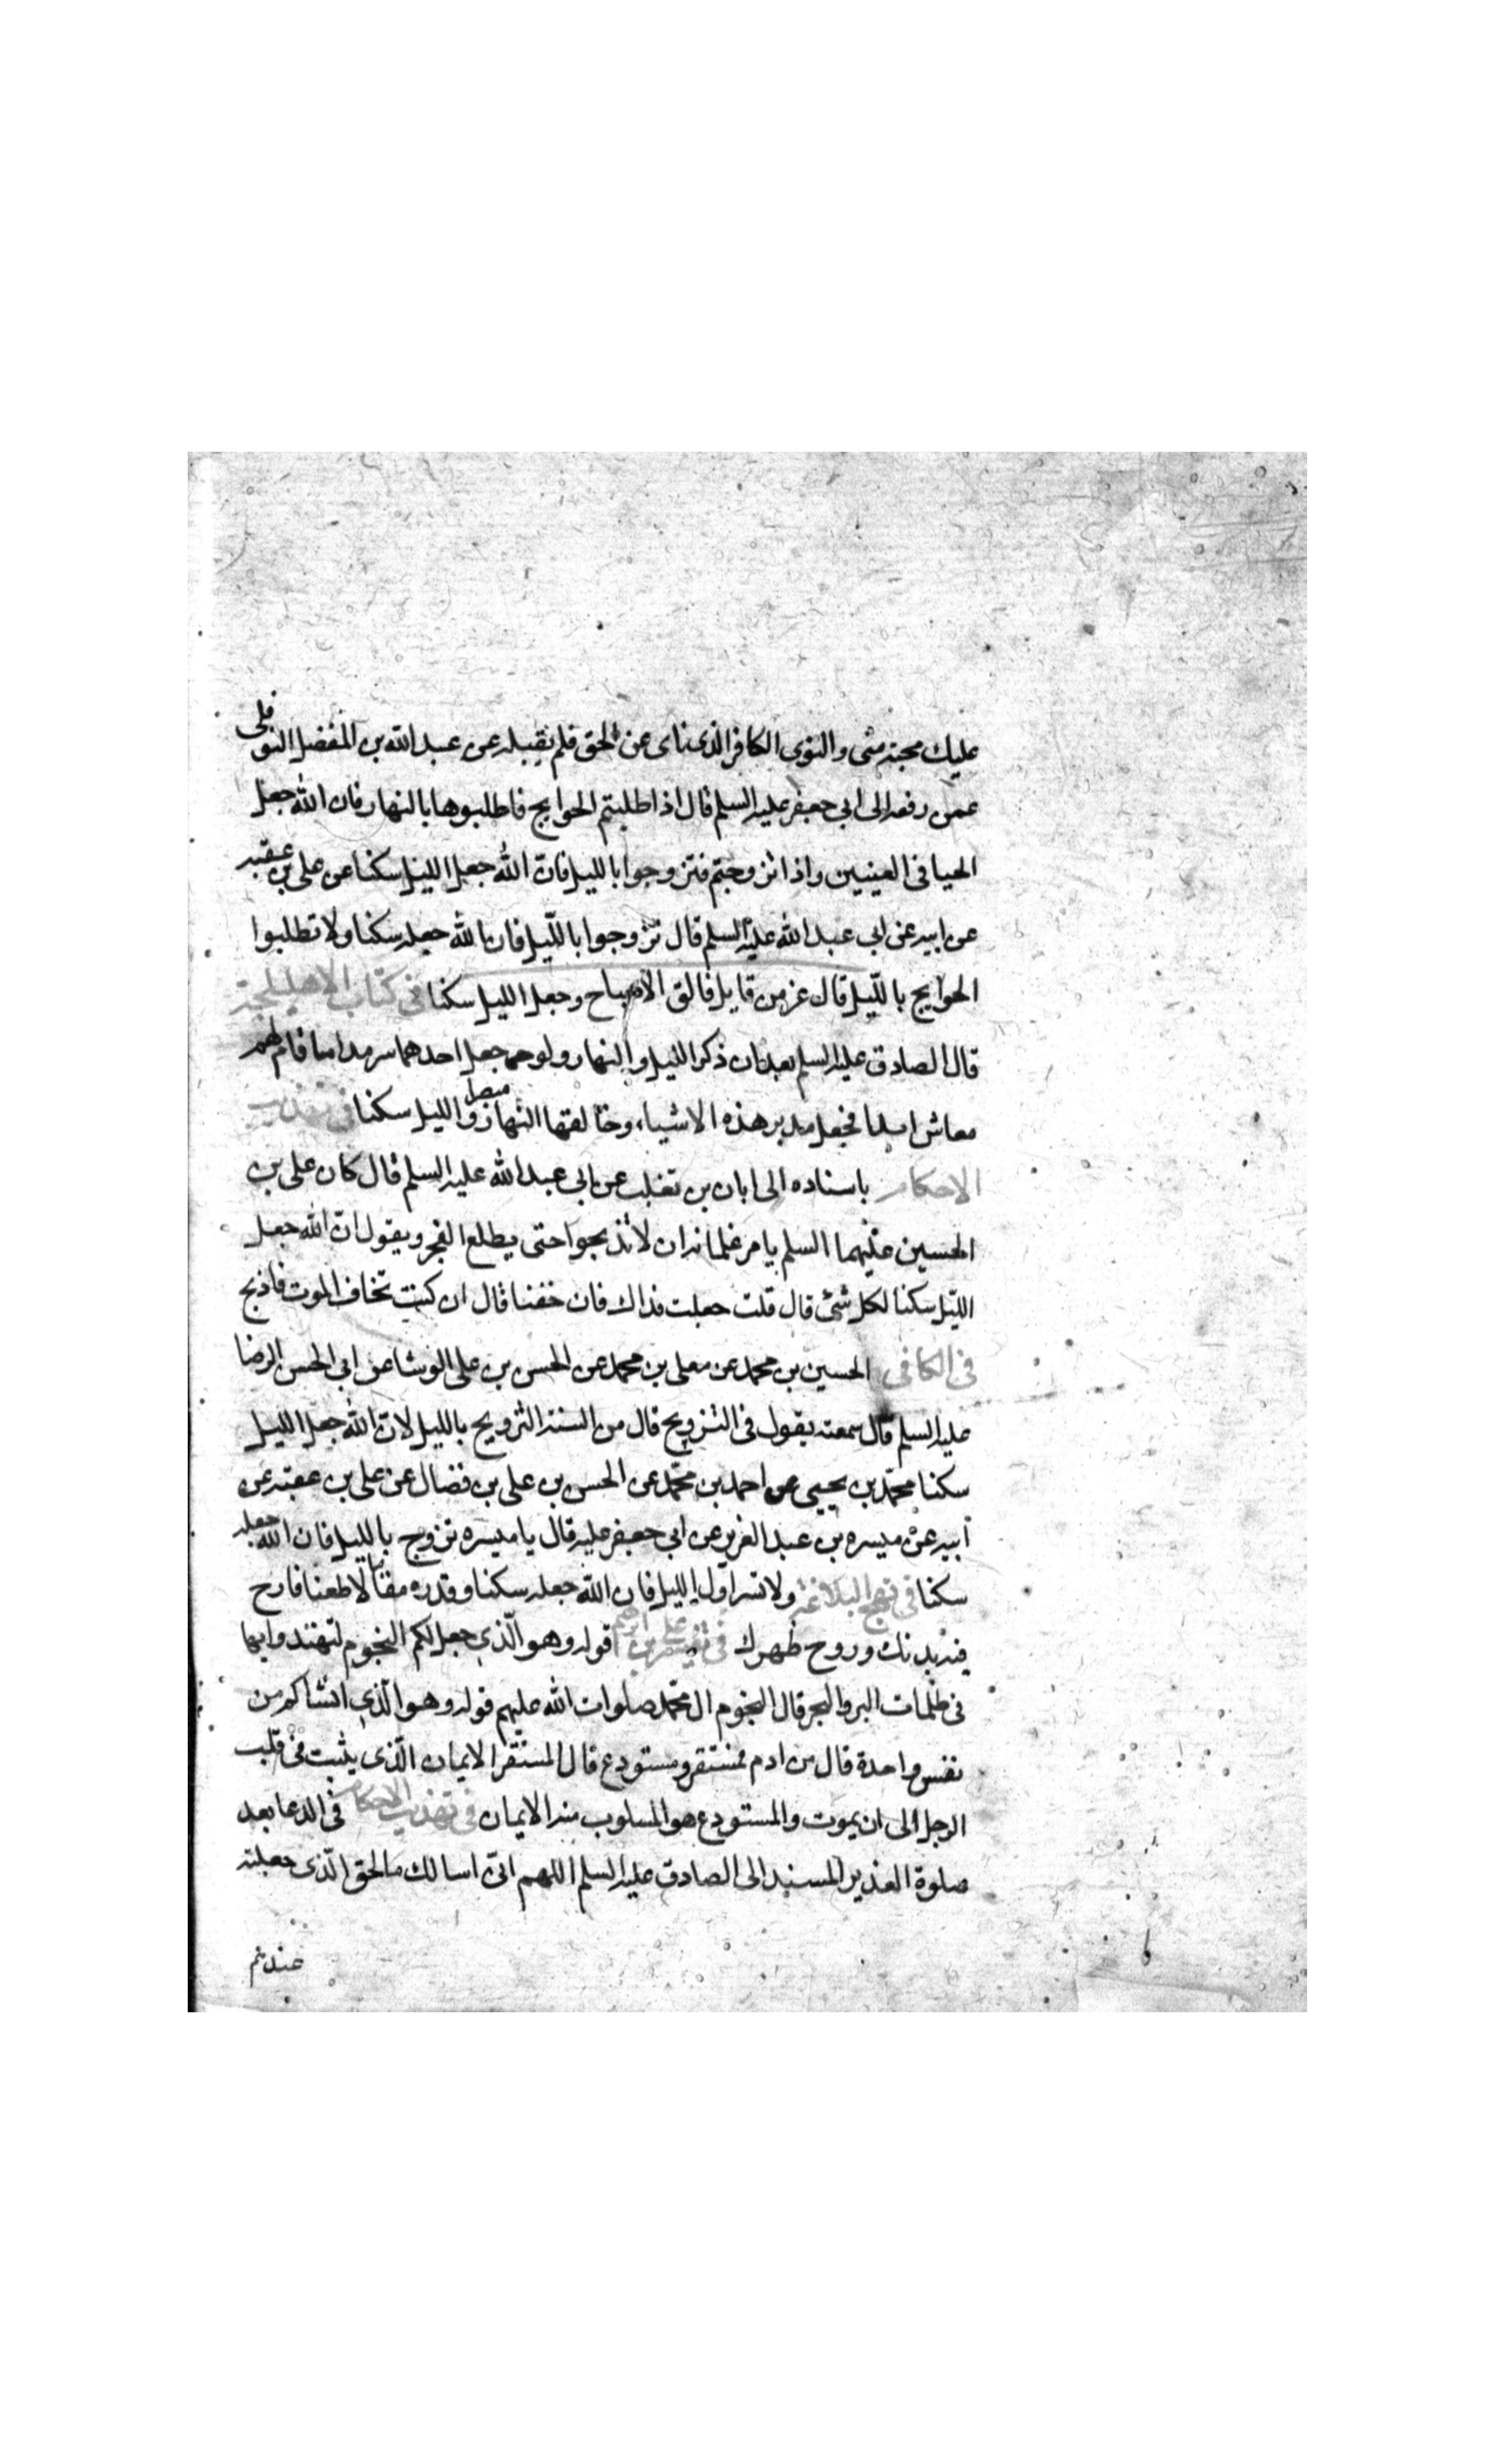 عليك محبة منى والنوى الكافر الذى ناى عن الحق فلم يقبله عن عبد الله بن المفضل النوفلى
عمن رفعه الى ابى جعفر عليه السلم قال اذا طلبتم الحوايج فاطلبوها بالنهار فان الله جعل
الحيا فى العينين واذا تزوجتم فتزوجوا بالليل فان الله جعل الليل سكنا عن على بن عقبه
عن ابيه عن ابى عبد الله عليه السلم قال تزوجوا بالليل فان الله جعله سكنا ولا تطلبوا
الحوايج بالليل قال عز من قايل فالق الاصباح وجعل الليل سكنا فى كتاب الاهليلجة
قال الصادق عليه السلم بعد ان ذكر الليل والنهار ولو جعل احدهما سرمدا ما قام لهم
معاش ابدا فجعل مدبر هذه الاشياء وخالقها النهار مبصرا والليل سكنا فى تهذيب
الاحكام باسناده الى ابان بن تغلب عن ابى عبد الله عليه السلم قال كان على بن
الحسين عليهما السلم يامر غلمانه ان لا تذبحوا حتى يطلع الفجر ويقول ان الله جعل
الليل سكنا لكل شئ قال قلت جعلت فداك فان خفنا قال ان كنت تخاف الموت فاذبح
فى الكافى الحسين بن محمد عن معلى بن محمد عن الحسن بن على الوشا عن ابى الحسن الرضا
عليه السلم قال سمعته يقول فى التزويج قال من السنة التزويج بالليل لان الله جعل الليل
سكنا محمد بن يحيى عن احمد بن محمد عن الحسن بن على بن فضال عن على بن عقبه عن
ابيه عن ميسره بن عبد العزيز عن ابى جعفر عليه قال يا ميسره تزوج بالليل فان الله جعله
سكنا فى نهج البلاغة ولا تسر اول الليل فان الله جعله سكنا وقدره مقاما لا طعنا فارح
فيه بدنك وروح ظهرك فى تفسير على بن ابرهيم قوله وهو الذى جعل لكم النجوم لتهتدوا بها
فى ظلمات البر والبحر قال النجوم ال محمد صلوات الله عليهم قوله وهو الذى انشاكم من
نفس واحدة قال من ادم فمستقر ومستودع قال المستقر الايمان الذى يثبت فى قلب
الرجل الى ان يموت والمستودع هو المسلوب منه الايمان فى تهذيب الاحكام فى الدعا بعد
صلوة الغدير المسند الى الصادق عليه السلم اللهم انى اسالك بالحق الذى جعلته
عندهم